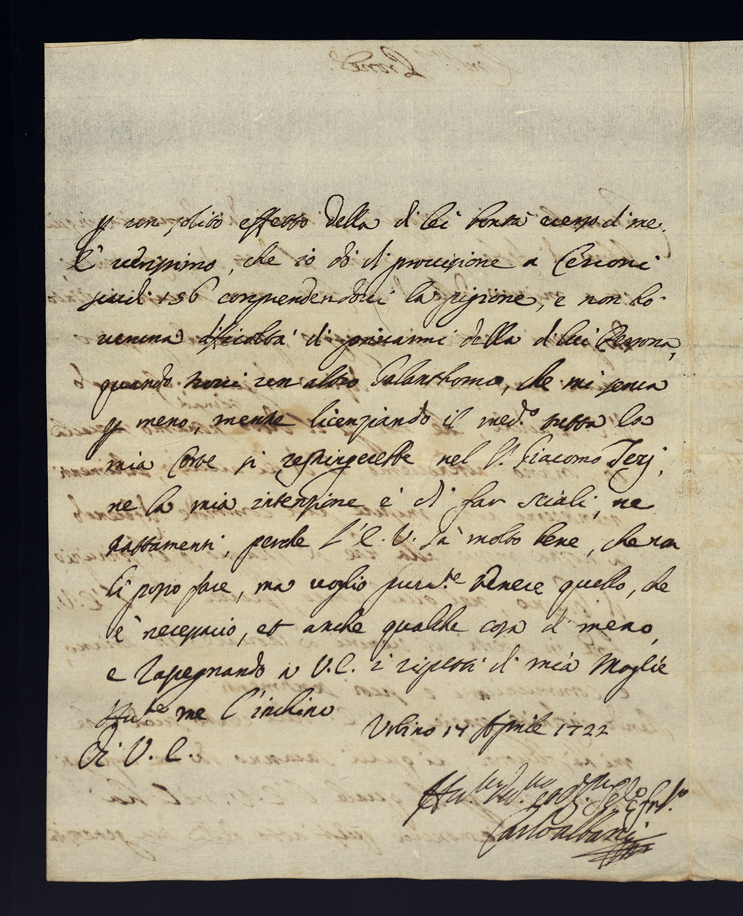 un solito effetto della di lei bontà verso di me.
È verissimo, che io dò di provisione a Cerroni
scudi 156 comprendendovi la pigione, e non hò
veruna dificoltà di privarmi della di lui Persona,
quando trovi un altro Galanthomo, che mi serva
p meno, mentre licenziando il med.º tutta la
mia Corte si restringerebbe nel S.r Giacomo Terzj,
ne la mia intenzione è di far scialì, ne
trattamenti, perche l'E. V. sà molto bene, che non
li posso fare, ma voglio pura.te tenere quello, che
è necessario, et anche qualche cosa di meno,
e rassegnando a V.E. i rispetti di mia Moglie
Hu.te me l'inchino
Di V. E.
Urbino 17 Aprile 1722
Carlo Albani